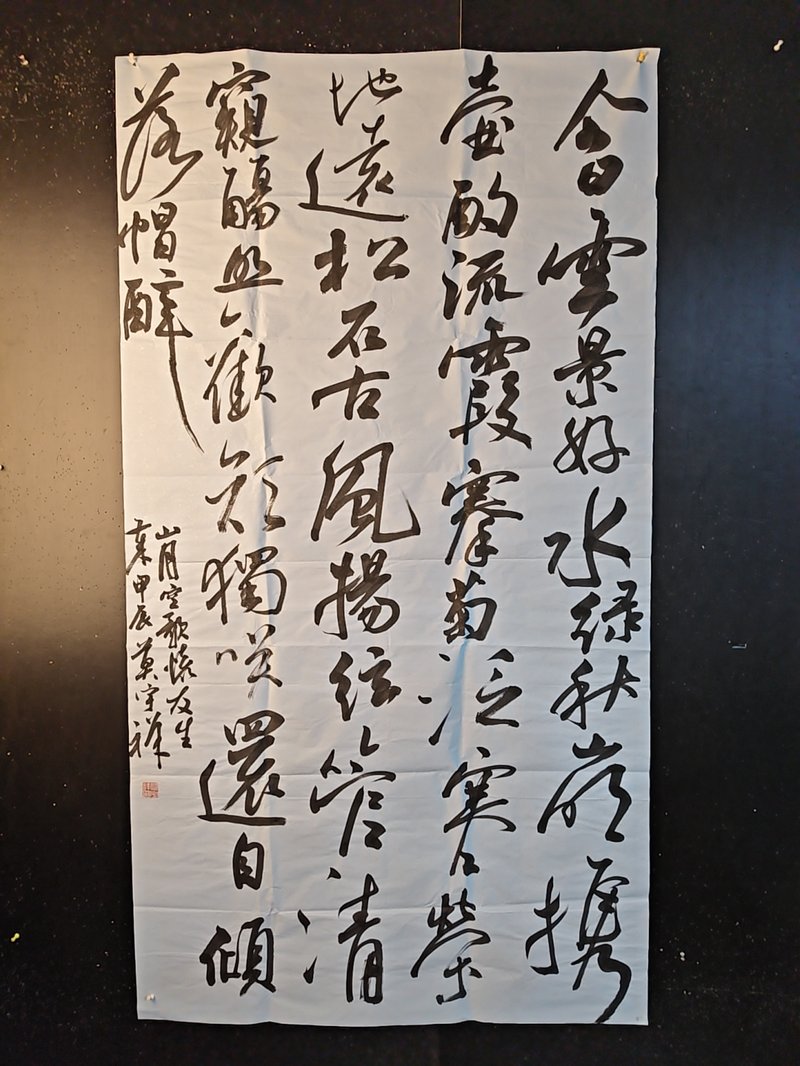 今日雲景好水緑秋山明攜
壺酌流霞搴菊泛寒榮
地遠松石古風揚絃管清
窺觴照歡顏獨咲還自傾
落帽醉
山月空歌懷友生
甲辰莫守祥